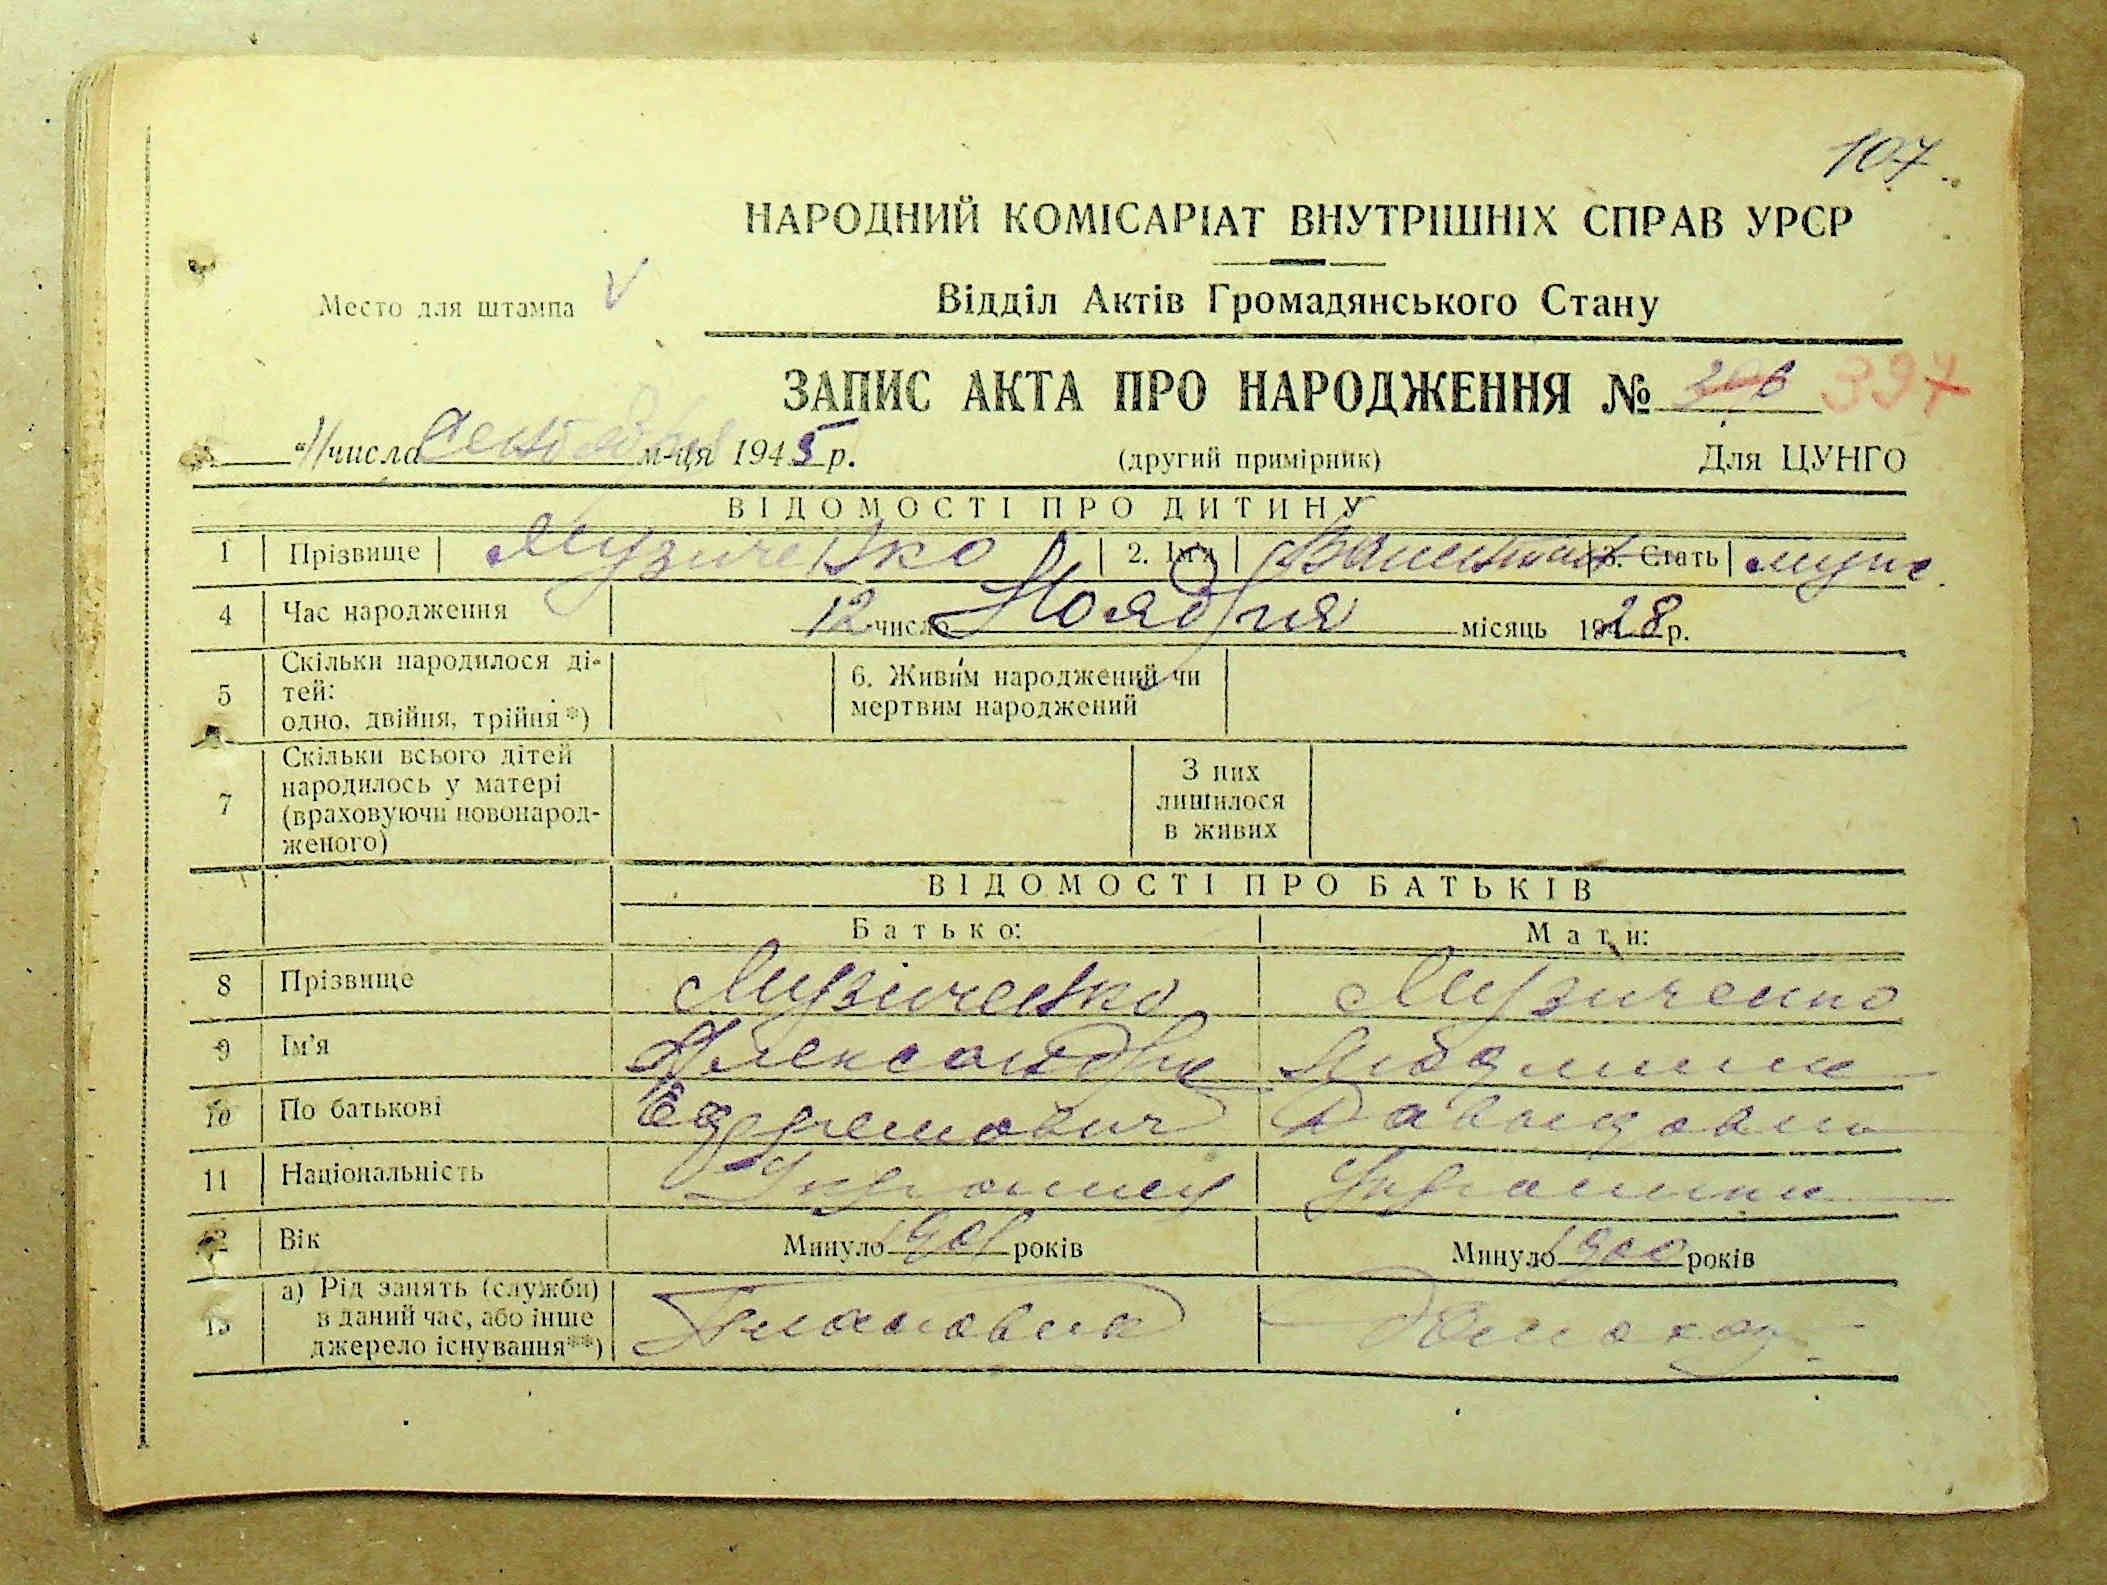 107
НАРОДНИЙ КОМІСАРІАТ ВНУТРІШНІХ СПРАВ УРСР
Место для штампа
Відділ Актів Громадянського Стану
ЗАПИС АКТА ПРО НАРОДЖЕННЯ № 397
"11" числа Сентября м-ця 1945 р. (другий примірник) Для ЦУНГО
ВІДОМОСТІ ПРО ДИТИНУ
1 Прізвище Музиченко 2. Ім'я Валентин 3. Стать муж.
4 Час народження 12 число Ноября місяць 1928 р.
5 Скільки народилося ді-
тей:
одно, двійня, трійня*)
6. Живим народжений чи
мертвим народжений
7 Скільки всього дітей
народилось у матері
(враховуючи новонарод-
женого)
З них
лишилося
в живих
ВІДОМОСТІ ПРО БАТЬКІВ
Батько: Мати:
8 Прізвище Музиченко Музиченко
9 Ім'я Александр
10 По батькові Ефремович Давидовна
11 Національність Украинец Украинка
12 Вік Минуло 1901 років Минуло 1900 років
13 а) Рід занять (служби)
в даний час, або інше
джерело існування**)
Плановик Домохоз.